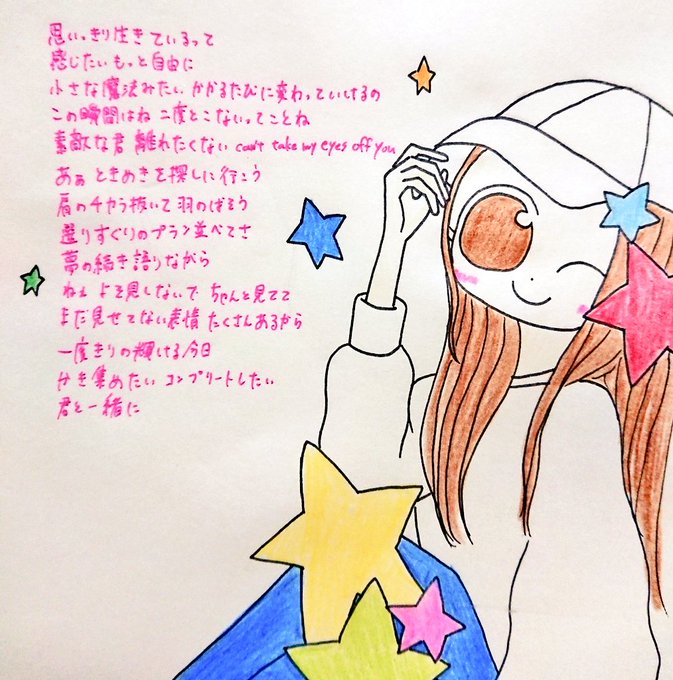 思いっきり生きているって
感じたい もっと自由に
小さな魔法みたい かかるたびに変わっていけるの
この瞬間はね 二度とこないってことね
素敵な君 離れたくない can't take my eyes off you
あぁ ときめきを探しに行こう
肩のチカラ抜いて 羽のばそう
選りすぐりのプラン並べてさ
夢の続き語りながら
ねぇ よそ見しないで ちゃんと見てて
まだ見せてない表情 たくさんあるから
一度きりの輝ける今日
かき集めたい コンプリートしたい
君と一緒に